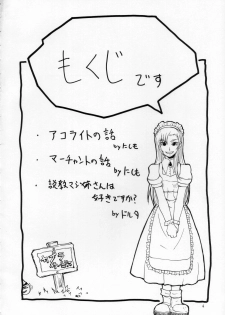 もくじです
・アコライトの話
by にしも
・マーチャントの話
by にしも
・説教マジ姉さんは
好きですか?
by ドルタ